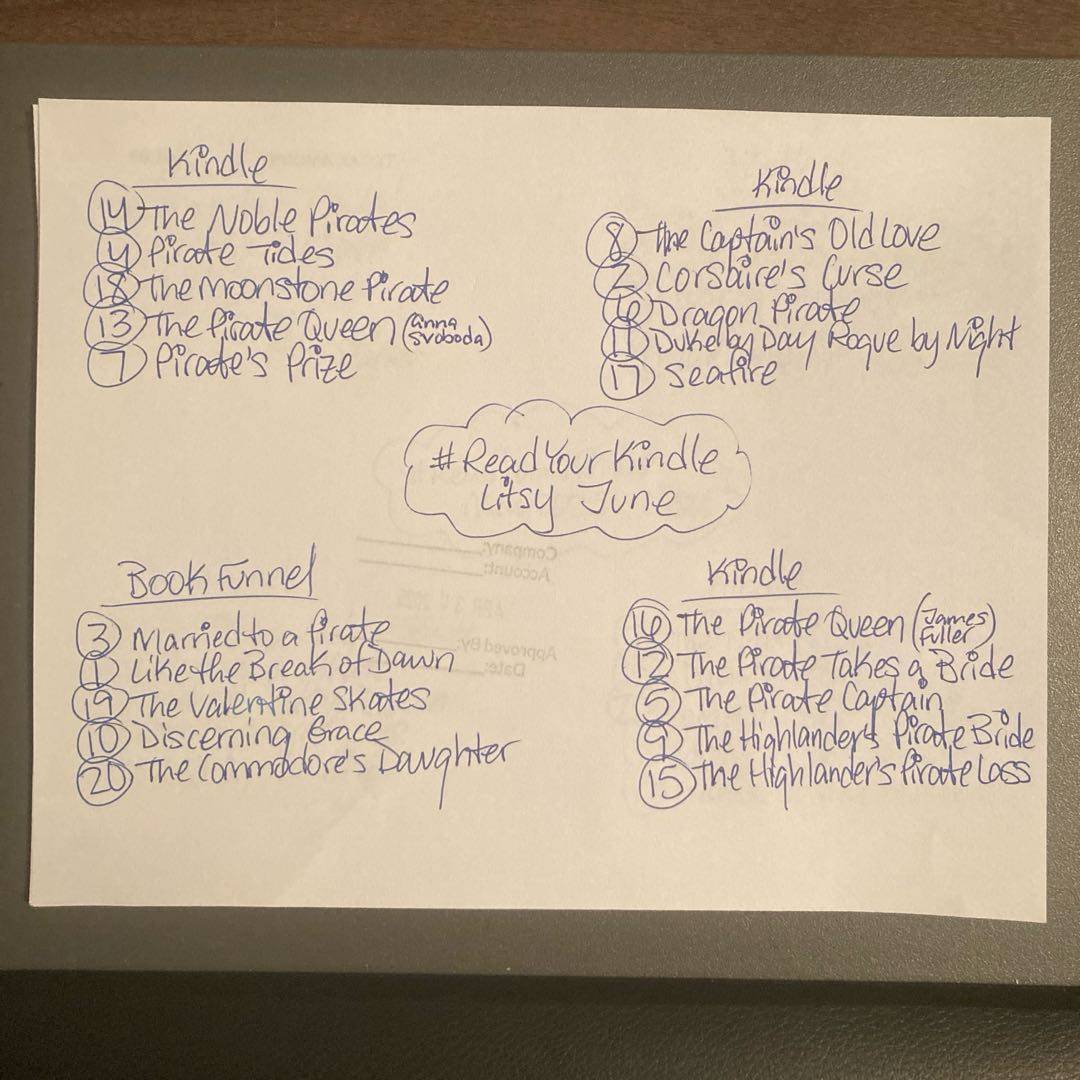 Kindle
14 The Noble Pirates
4 Pirate Tides
18 The Moonstone Pirate
13 The Pirate Queen (Anna Svoboda)
7 Pirate's Prize
Kindle
8 The Captain's Old Love
2 Corsaire's Curse
6 Dragon Pirate
11 Duke by Day Rogue by Night
17 Seafire
#ReadYourKindle
Litsy June
Book Funnel
3 Married to a Pirate
1 Like the Break of Dawn
19 The Valentine Skates
10 Discerning Grace
20 The Commodore's Daughter
Kindle
16 The Pirate Queen (James Fuller)
12 The Pirate Takes a Bride
5 The Pirate Captain
9 The Highlander's Pirate Bride
15 The Highlander's Pirate Lass
Company:
Account:
Approved By:
Date: